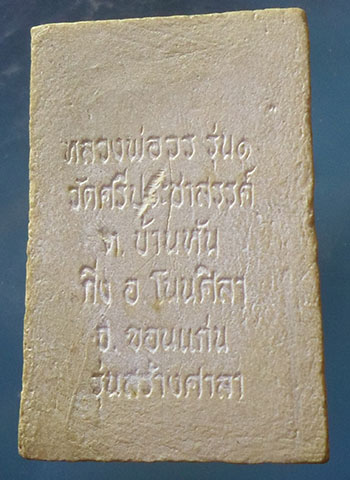 หลวงพ่ออร รุ่น๑
วัดศรีประชาสรรค์
ต. บ้านหัน
กิ่ง อ. โนนศิลา
จ. ขอนแก่น
รุ่นสร้างศาลา